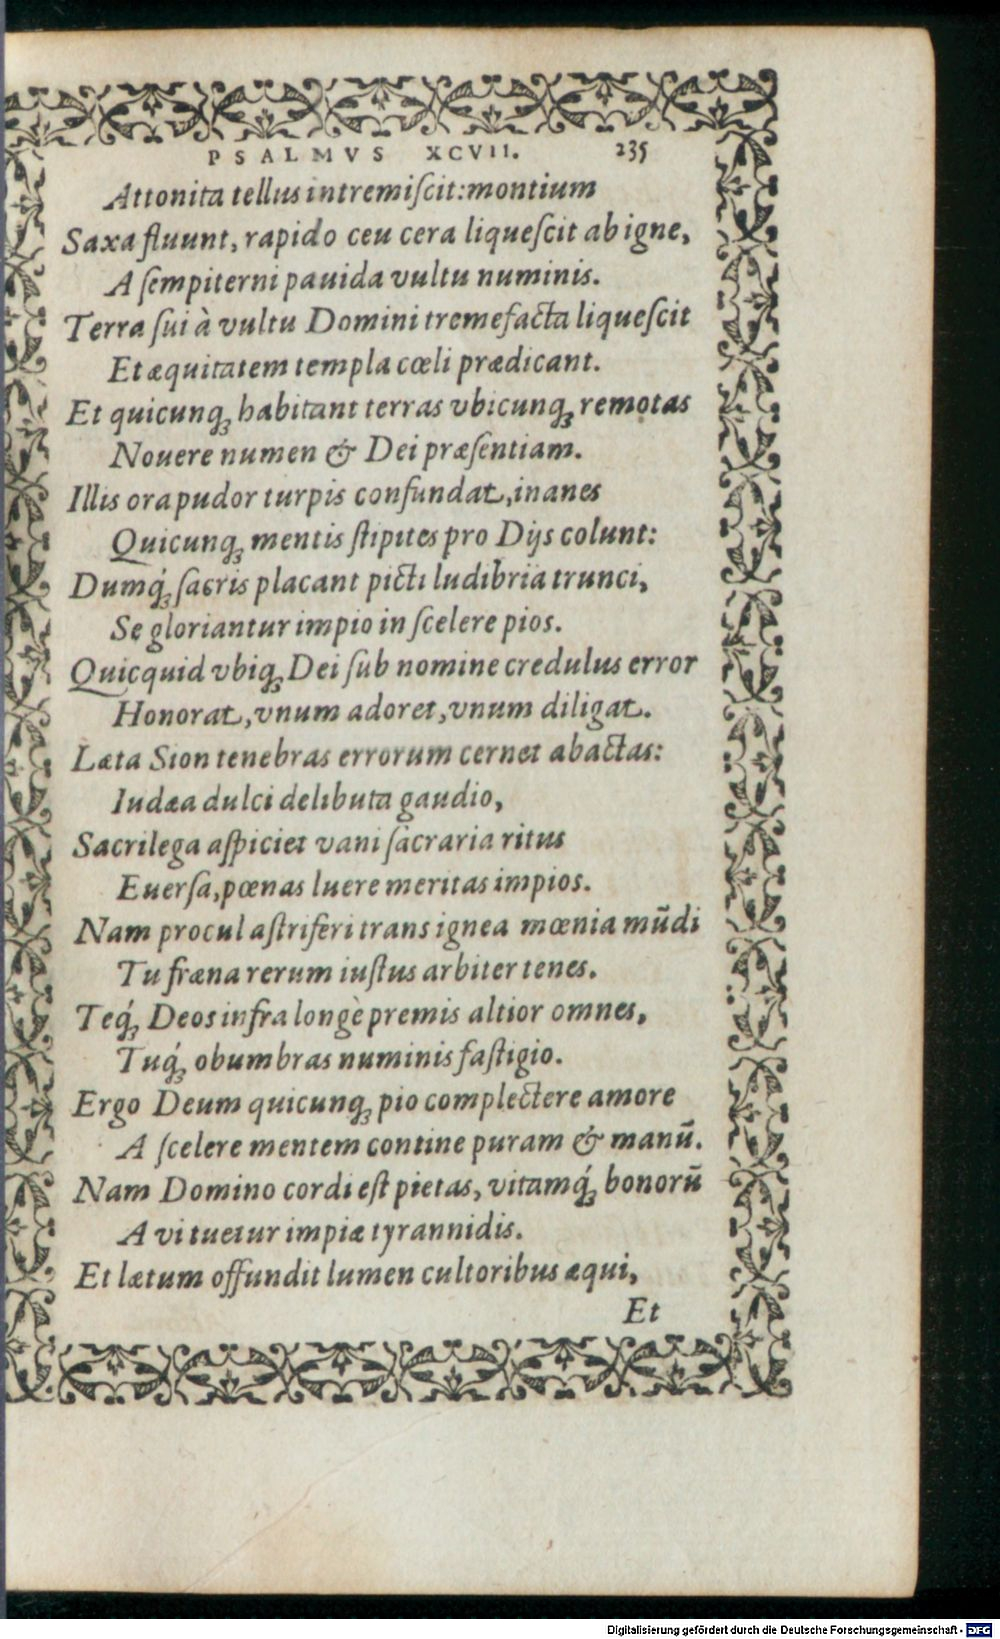 PSALMVS XCVII. 235
Attonita tellus intremiſcit: montium
Saxa fluunt, rapido ceu cera liqueſcit ab igne,
A ſempiterni pauida vultu numinis.
Terra ſui à vultu Domini tremefacta liqueſcit
Et æquitatem templa cœli prædicant.
Et quicunq; habitant terras vbicunq; remotas
Nouere numen & Dei præſentiam.
Illis ora pudor turpis confundat, inanes
Quicunq; mentis ſtipites pro Dijs colunt:
Dumq́; ſacris placant picti ludibria trunci,
Se gloriantur impio in ſcelere pios.
Quicquid vbiq; Dei ſub nomine credulus error
Honorat, vnum adoret, vnum diligat.
Læta Sion tenebras errorum cernet abactas:
Iudæa dulci delibuta gaudio,
Sacrilega aſpiciet vani ſacraria ritus
Euerſa, pœnas luere meritas impios.
Nam procul aſtriferi trans ignea mœnia mūdi
Tu fræna rerum iuſtus arbiter tenes.
Teq́; Deos infra longè premis altior omnes,
Tuq́; obumbras numinis faſtigio.
Ergo Deum quicunq; pio complectere amore
A ſcelere mentem contine puram & manū.
Nam Domino cordi eſt pietas, vitamq́; bonorū
A vi tuetur impiæ tyrannidis.
Et lætum offundit lumen cultoribus æqui,
Et
Digitalisierung gefördert durch die Deutsche Forschungsgemeinschaft - DFG